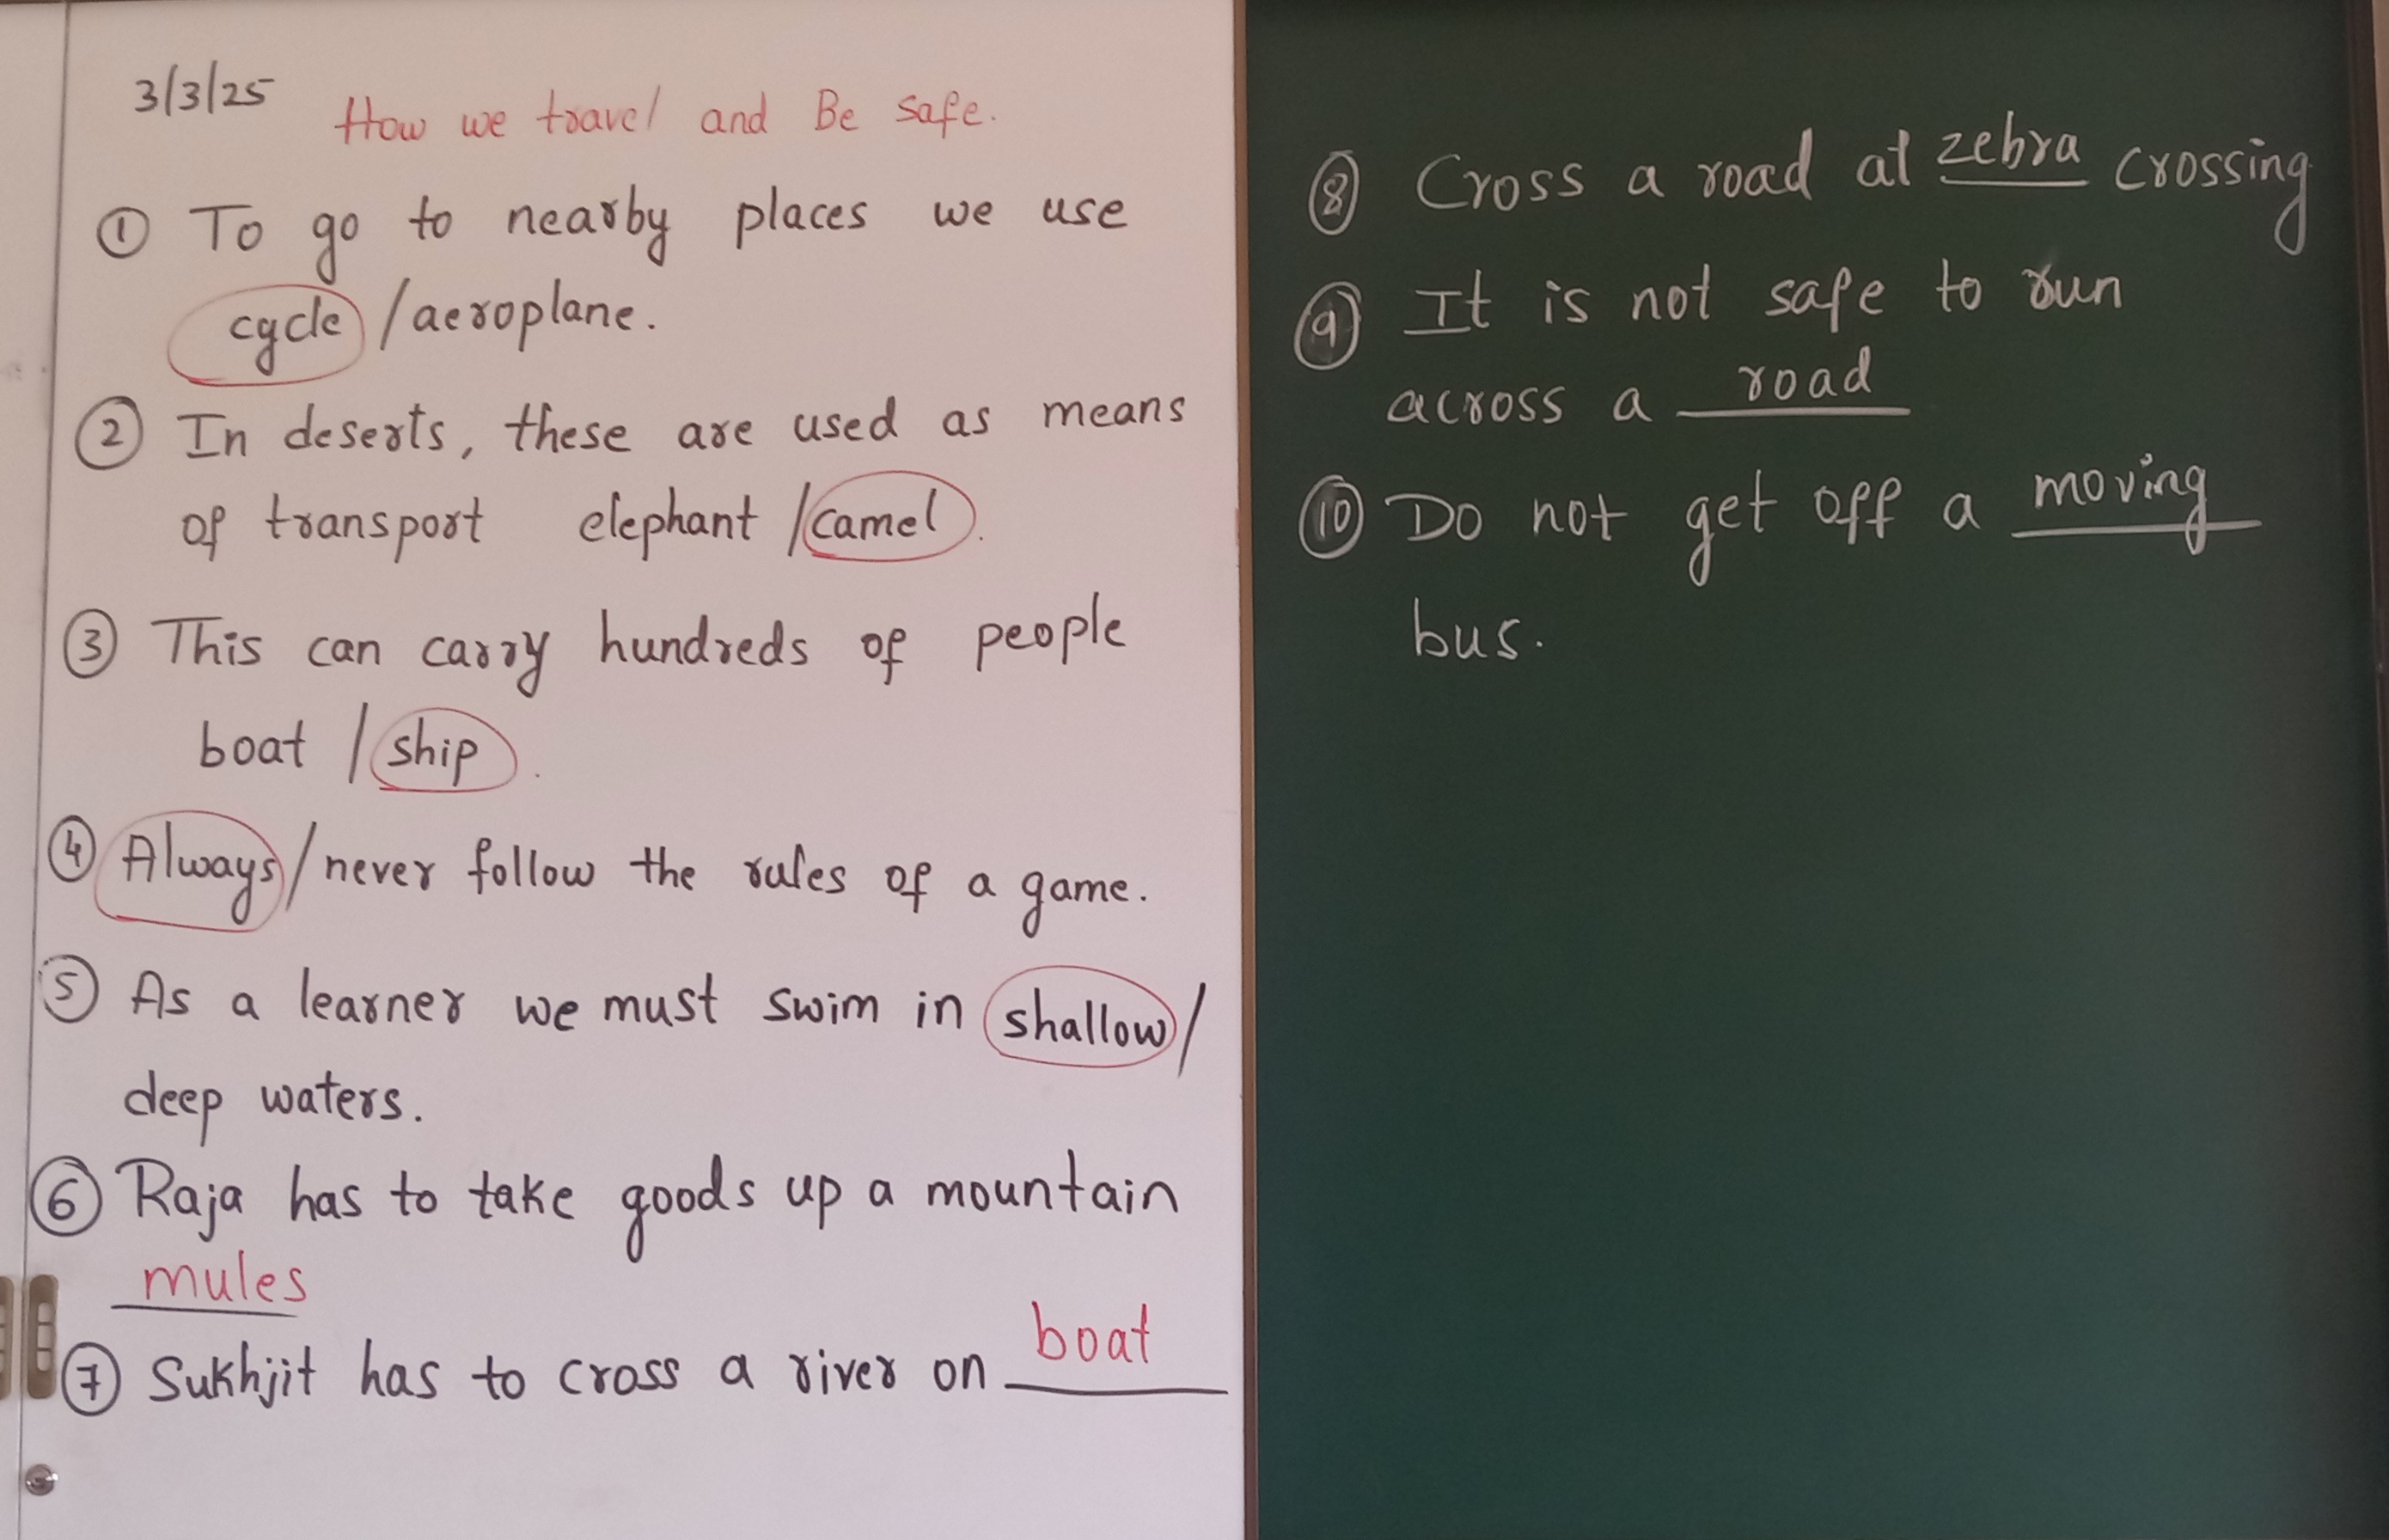 3/3/25 How we travel and Be safe.
① To go to nearby places we use
cycle /aeroplane.
② In deserts, these are used as means
of transport elephant /camel.
③ This can carry hundreds of people
boat /ship.
④ Always/never follow the rules of a game.
⑤ As a learner we must swim in shallow/
deep waters.
⑥ Raja has to take goods up a mountain
mules
⑦ Sukhjit has to cross a river on boat
⑧ Cross a road at zebra crossing
⑨ It is not safe to run
across a road
⑩ Do not get off a moving
bus.